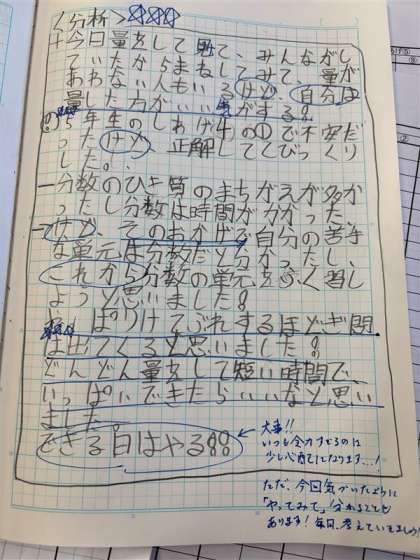 <分析>
+今日量をして見て、みんながし
ていたからまねしてみて、量が
あわない人もいるけど、自分は
量した方がいい気がする。
5年生のしあげ4の①で不安だ
ったけど 正解しててびっくり
した。
一分数のひき算のまちがえが多か
ったし分数は時間がかかった、
→けど、そのおかげで自分の苦手
な単元は分数だと分かったし、
これから分数の単元をふく習し
ようと思いました。
やっぱりけテぶれするほどぎ問
は出てくると思いました。
どんどん量をして短い時間で、
いっぱいできたらいいなと思い
ました。
できる日はやる
大事!!
いつも全力すぎるのは
少し心配になります...!
ただ、今回気づいたように
「やってみて」分かることも
あります!毎日、考えていきましょう!